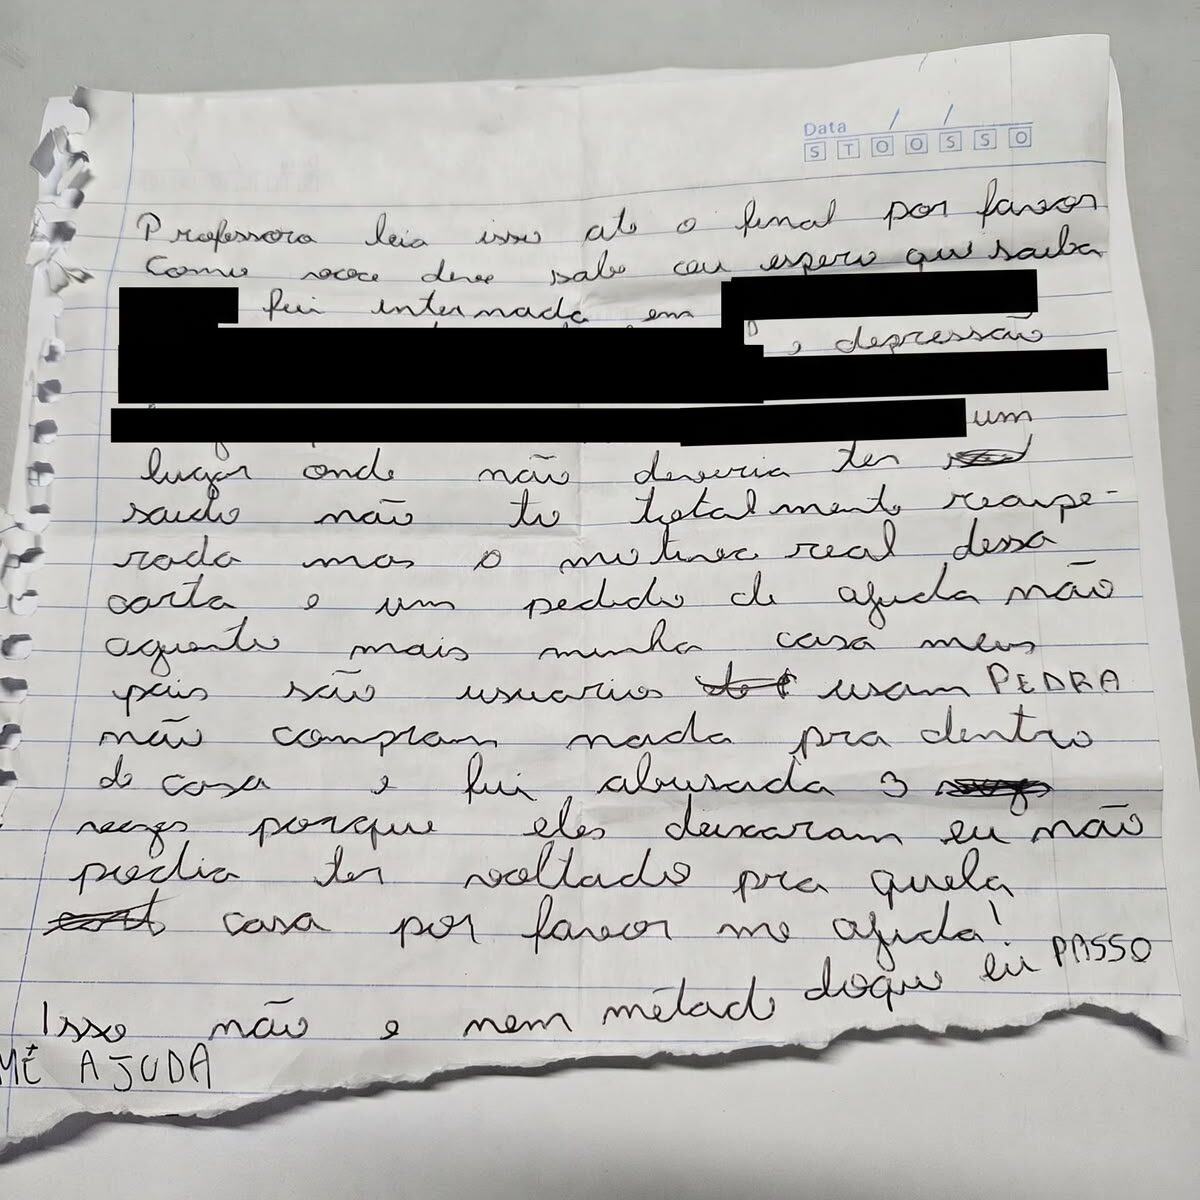 Data / /
S T Q Q S S D
Professora leia isso até o final por favor
Como voce deve sabe ou espero que saiba
fui internada em
, depressão
um
lugar onde não deveria ter
saido não to totalmente recupe-
rada mas o motivo real dessa
carta e um pedido de ajuda não
aguento mais minha casa meus
pais são usuarios usam PEDRA
não compram nada pra dentro
de casa e fui abusada 3
vezes porque eles deixaram eu não
podia ter voltado pra quela
casa por favor me ajuda!
Isso não e nem métad doque eu PASSO
ME AJUDA